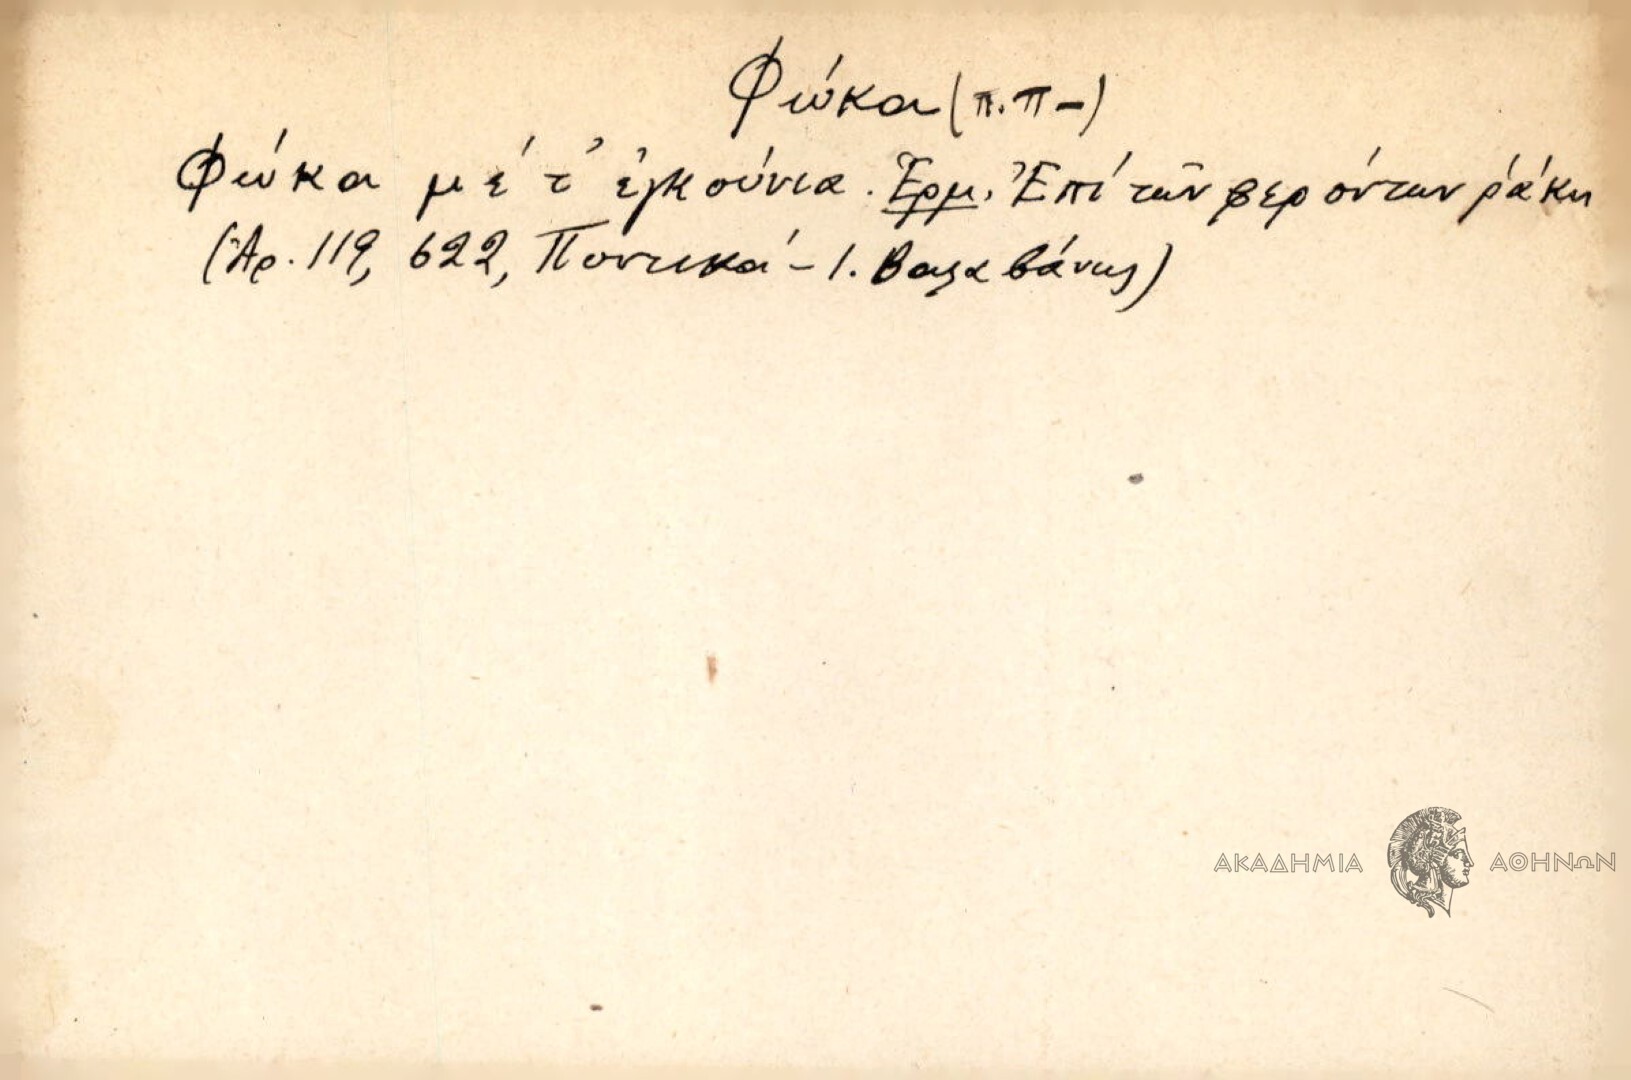 Φώκα (π.π-)
Φώκα μέ τ' ἐγκούνια. Ἑρμ. Ἐπί τῶν φερόντων ράκη
(Ἀρ. 119, 622, Ποντικά - Ι. Βαλαβάνης)
ΑΚΑΔΗΜΙΑ ΑΘΗΝΩΝ